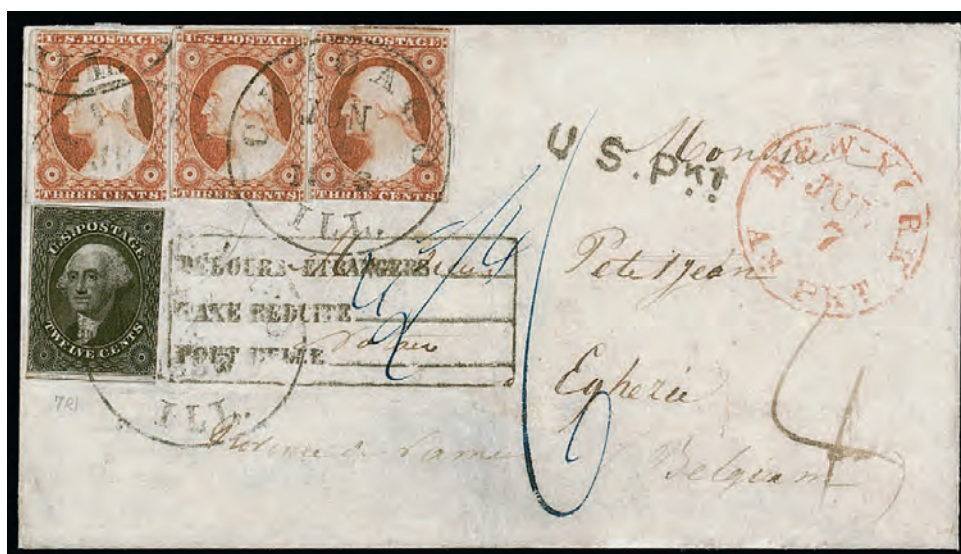 U.S. POSTAGE
THREE CENTS
U.S. POSTAGE
THREE CENTS
U.S. POSTAGE
THREE CENTS
CHICAGO
JUN
ILL.
U.S. POSTAGE
TWELVE CENTS
ILL.
DÉBOURS-ÉTRANGERS
TAXE RÉDUITE
PORT BELGE
U.S. Pkt
NEW-YORK
JUN
7
AM PKT
Monsieur
Petitjean
Eghezée
Province de Namur
Belgium
7R1